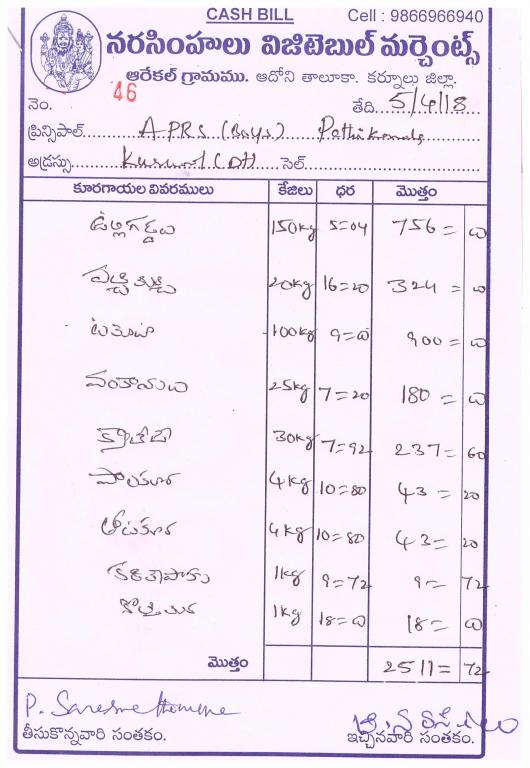 CASH BILL
Cell : 9866966940
నరసింహులు విజిటెబుల్ మర్చెంట్స్
ఆరేకల్ గ్రామము. ఆదోని తాలూకా. కర్నూలు జిల్లా.
46
నెం. తేది. 5/4/18
ప్రిన్సిపాల్ APRS (Boys) Pathikonda
అడ్రస్సు Kurnool (Dt) సెల్.
కూరగాయల వివరములు కేజిలు ధర మొత్తం
ఉల్లిగడ్డలు 150kg 5=04 756=
పచ్చిమిర్చి 20kg 16=20 324=
టమోటా 100kg 9= 900=
వంకాయలు 25kg 7=20 180=
30kg 7=92 237= 60
4kg 10=80 43= 20
తోటకూర 4kg 10=80 43= 20
కరివేపాకు 1kg 9=72 9= 72
కొత్తిమీర 1kg 18= 18=
మొత్తం 2511= 72
P.
తీసుకొన్నవారి సంతకం. ఇచ్చినవారి సంతకం.